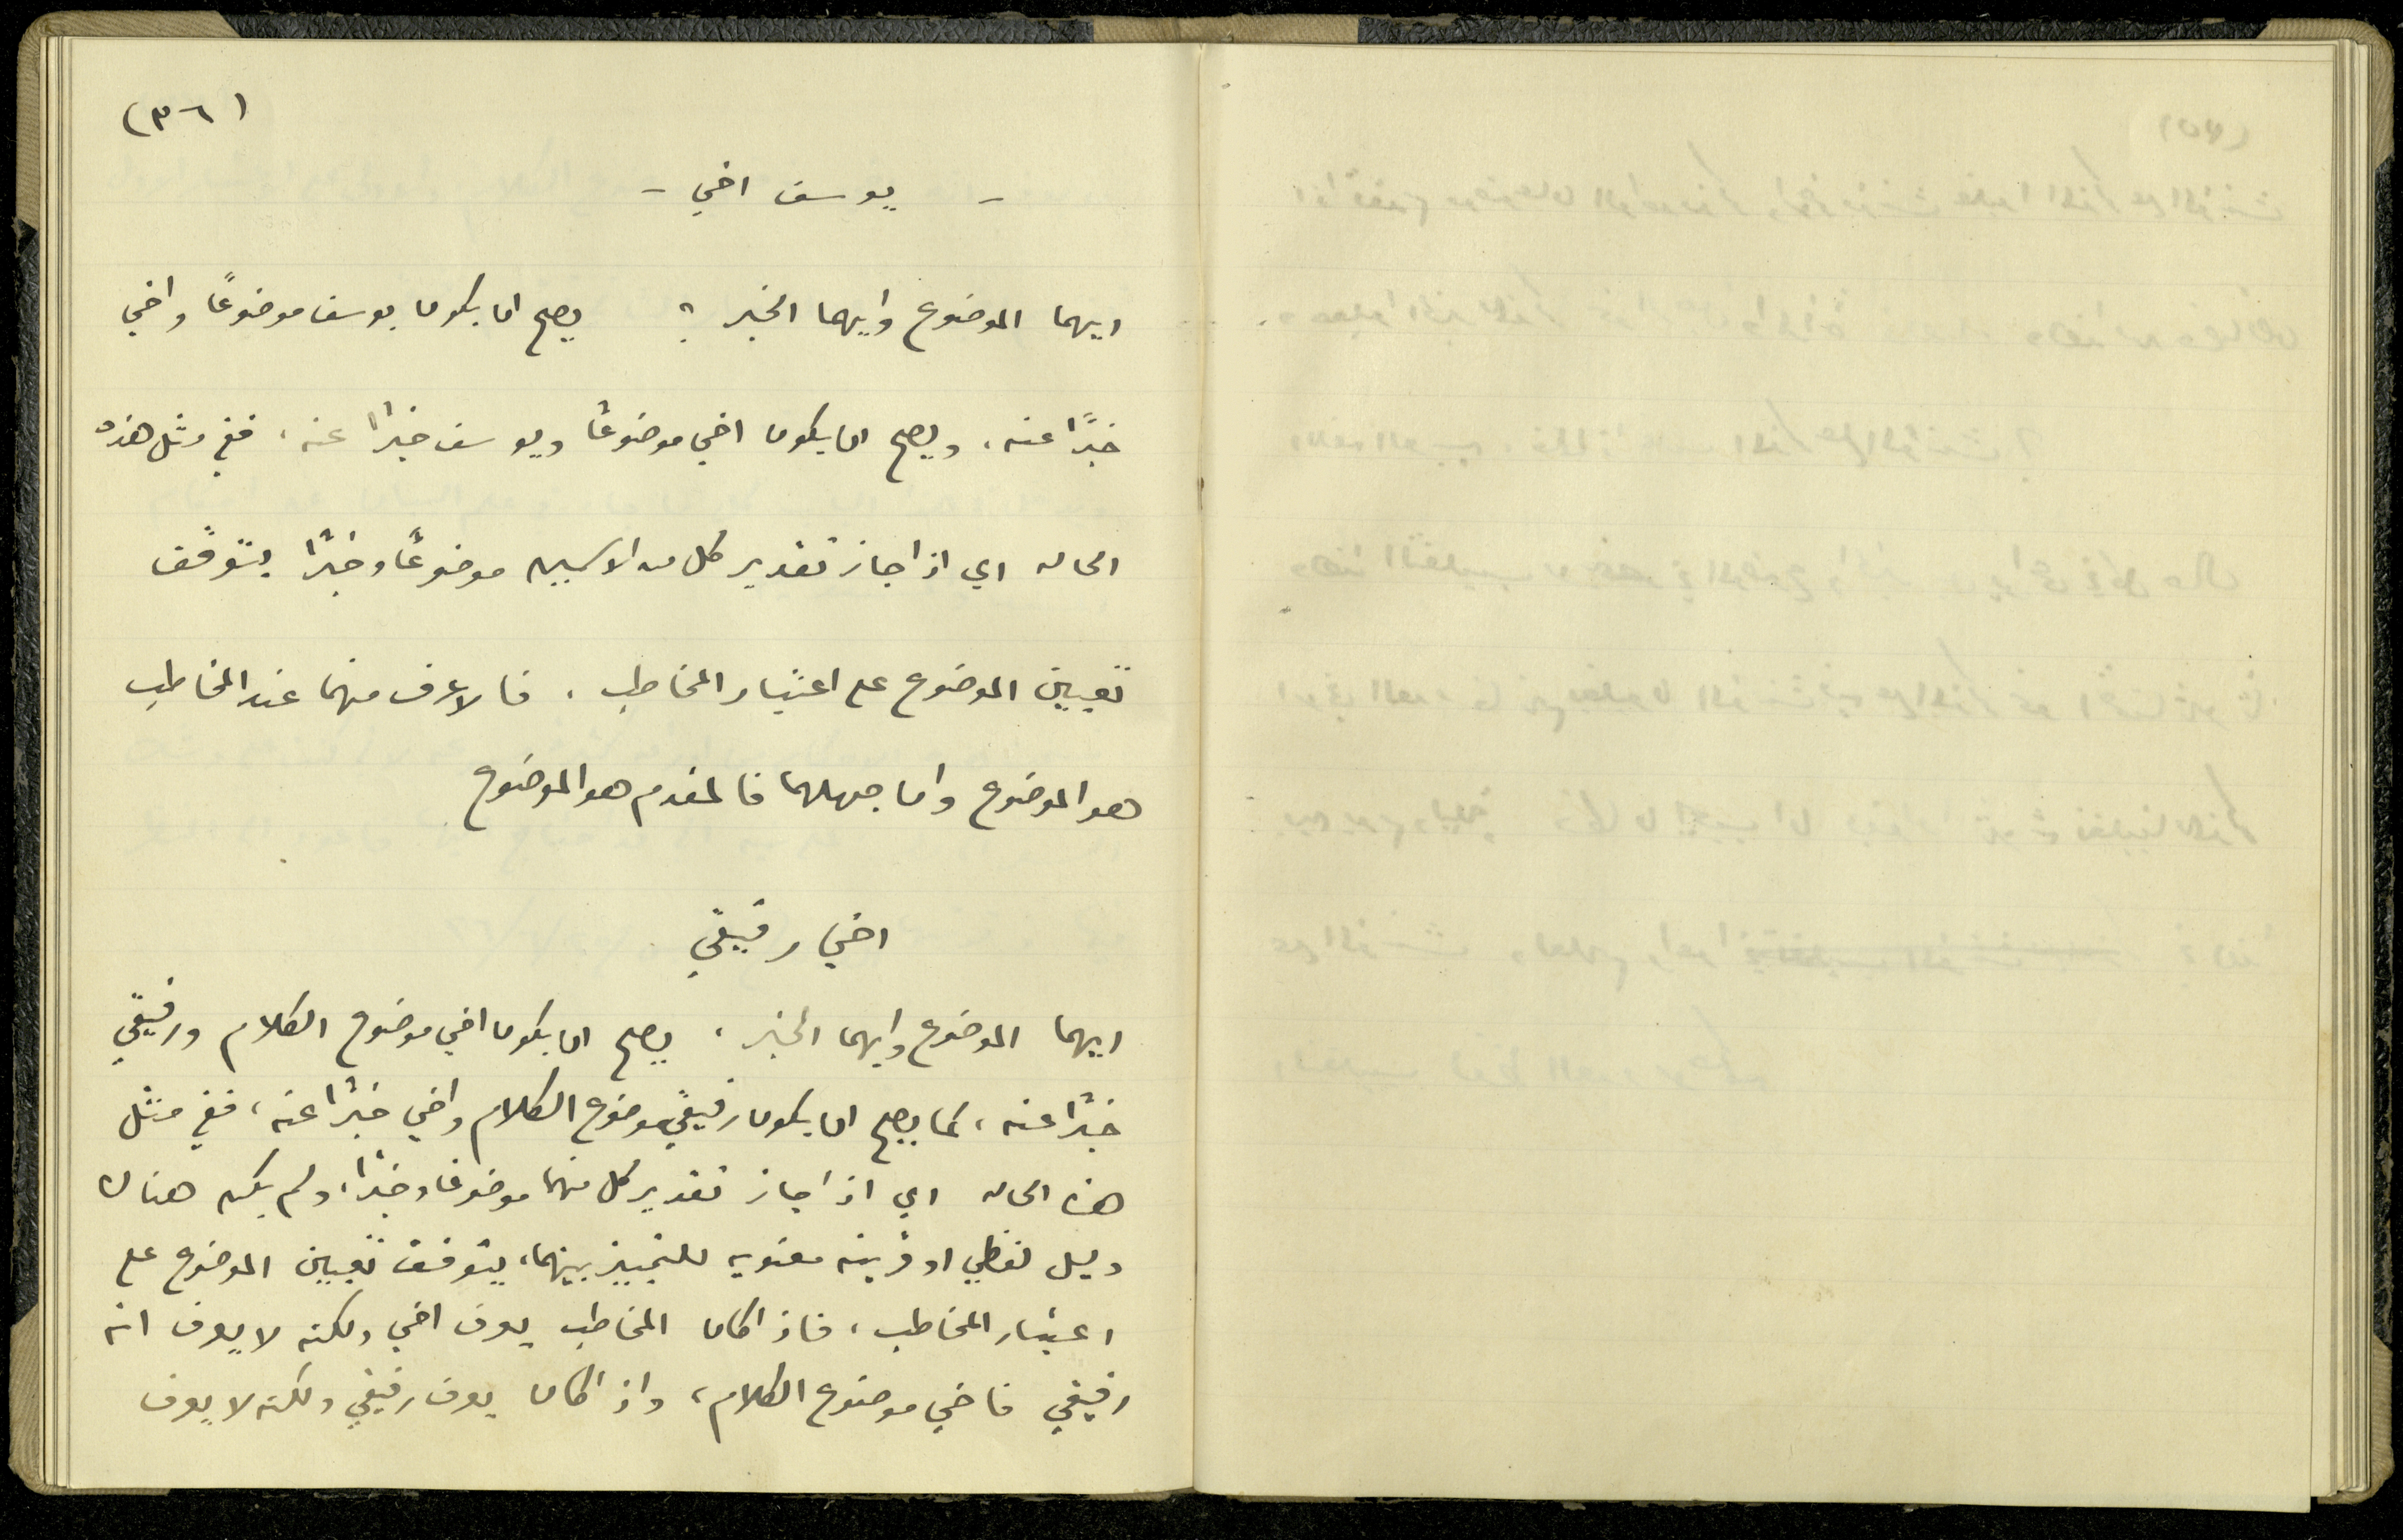 (٣٦)
- يوسف اخي -
ايهما الموضوع وايهما الخبر ؟ يصح ان يكون يوسف موضوعًا واخي
خبرًا عنه ، ويصح ان يكون اخي موضوعًا ويوسف خبرًا عنه ، ففي مثل هذه
الحاله اي اذا جاز تقدير كل من الاسمين موضوعًا وخبرًا يتوقف
تعيين الموضوع على اعتبار المخاطب ، فالاعرف منهما عند المخاطب
هو الموضوع وان جهلهما فالمقدم هو الموضوع
اخي رفيقي
ايهما الموضوع وايهما الخبر ، يصح ان يكون اخي موضوع الكلام ورفيقي
خبرًا عنه ، كما يصح ان يكون رفيقي موضوع الكلام واخي خبرًا عنه ، ففي مثل
هذه الحاله اي اذا جاز تقدير كل منهما موضوعًا وخبرًا ، ولم يكن هناك
دليل لفظي او قرينه معنويه للتمييز بينهما ، يتوقف تعيين الموضوع على
اعتبار المخاطب ، فاذا كان المخاطب يعرف اخي ولكنه لا يعرف انه
رفيقي فاخي موضوع الكلام ، واذا كان يعرف رفيقي ولكنه لا يعرف